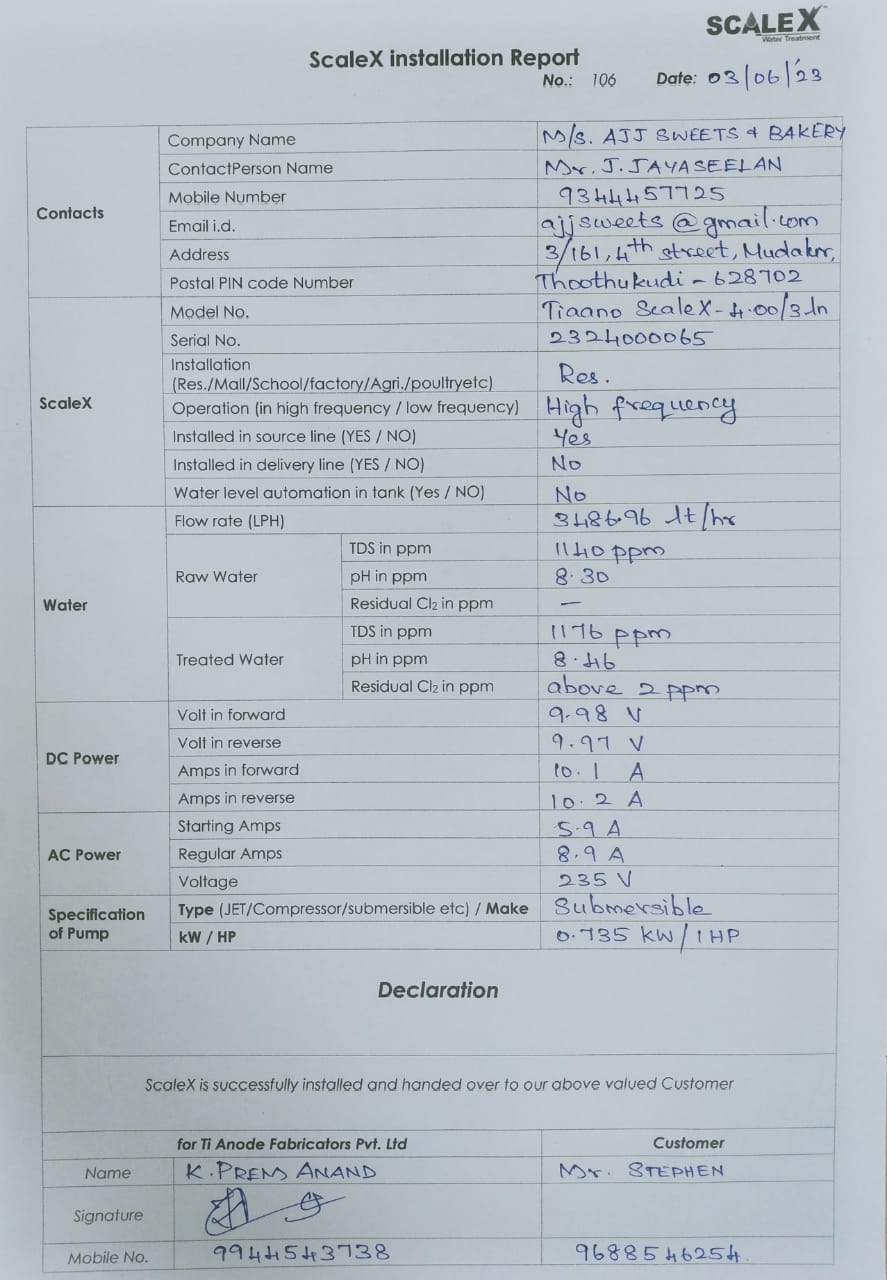 SCALEX™
Water Treatment
ScaleX installation Report
No.: 106 Date: 03/06/'23
Contacts
Company Name M/s. AJJ SWEETS & BAKERY
ContactPerson Name Mr. J. JAYASEELAN
Mobile Number 9344457725
Email i.d. ajjsweets@gmail.com
Address 3/161, 4th street, Mudalur,
Postal PIN code Number Thoothukudi - 628702
ScaleX
Model No. Tiaano ScaleX - 4.00/3 In
Serial No. 2324000065
Installation
(Res./Mall/School/factory/Agri./poultryetc) Res.
Operation (in high frequency / low frequency) High frequency
Installed in source line (YES / NO) Yes
Installed in delivery line (YES / NO) No
Water level automation in tank (Yes / NO) No
Water
Flow rate (LPH) 3486.96 lt/hr
Raw Water
TDS in ppm 1140 ppm
pH in ppm 8.30
Residual Cl2 in ppm —
Treated Water
TDS in ppm 1176 ppm
pH in ppm 8.46
Residual Cl2 in ppm above 2 ppm
DC Power
Volt in forward 9.98 V
Volt in reverse 9.97 V
Amps in forward 10.1 A
Amps in reverse 10.2 A
AC Power
Starting Amps 5.9 A
Regular Amps 8.9 A
Voltage 235 V
Specification
of Pump
Type (JET/Compressor/submersible etc) / Make Submersible
kW / HP 0.735 KW / 1 HP
Declaration
ScaleX is successfully installed and handed over to our above valued Customer
for Ti Anode Fabricators Pvt. Ltd Customer
Name K. PREM ANAND Mr. STEPHEN
Signature
Mobile No. 9944543738 9688546254.